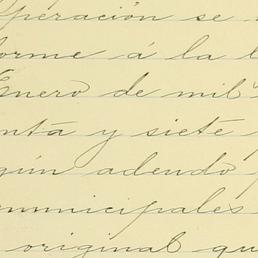 peración se
forme á la l
Enero de mil
enta y siete
gún adendo
municipales
original qu